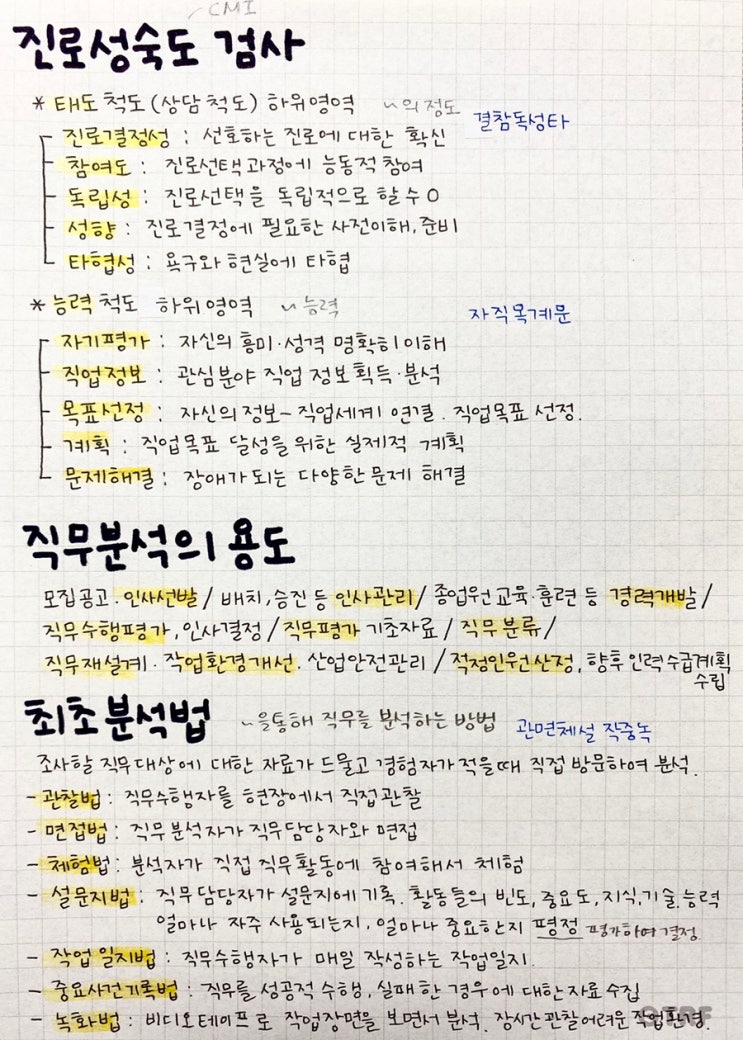 CMI
진로성숙도 검사
* 태도 척도 (상담 척도) 하위영역 ~의 정도
결참독성타
진로결정성 : 선호하는 진로에 대한 확신
참여도 : 진로선택 과정에 능동적 참여
독립성 : 진로선택을 독립적으로 할 수 O
성향 : 진로결정에 필요한 사전이해, 준비
타협성 : 욕구와 현실에 타협
* 능력 척도 하위영역 ~능력
자직목계문
자기평가 : 자신의 흥미·성격 명확히 이해
직업정보 : 관심분야 직업 정보획득·분석
목표선정 : 자신의 정보-직업세계 연결. 직업목표 선정.
계획 : 직업목표 달성을 위한 실제적 계획
문제해결 : 장애가 되는 다양한 문제 해결
직무분석의 용도
모집공고·인사선발 / 배치, 승진 등 인사관리 / 종업원 교육·훈련 등 경력개발 /
직무수행평가, 인사결정 / 직무평가 기초자료 / 직무분류 /
직무재설계·작업환경개선. 산업안전관리 / 적정인원산정, 향후 인력수급계획
수립
최초분석법 ~을 통해 직무를 분석하는 방법 관면체설 작중녹
조사할 직무대상에 대한 자료가 드물고 경험자가 적을때 직접 방문하여 분석.
- 관찰법 : 직무수행자를 현장에서 직접관찰
- 면접법 : 직무분석자가 직무담당자와 면접
- 체험법 : 분석자가 직접 직무활동에 참여해서 체험
- 설문지법 : 직무담당자가 설문지에 기록. 활동들의 빈도, 중요도, 지식, 기술, 능력
얼마나 자주 사용되는지, 얼마나 중요한지 평정 평가하여 결정.
- 작업 일지법 : 직무수행자가 매일 작성하는 작업일지.
- 중요사건기록법 : 직무를 성공적 수행, 실패한 경우에 대한 자료 수집
- 녹화법 : 비디오테이프로 작업장면을 보면서 분석. 장시간 관찰 어려운 작업환경.